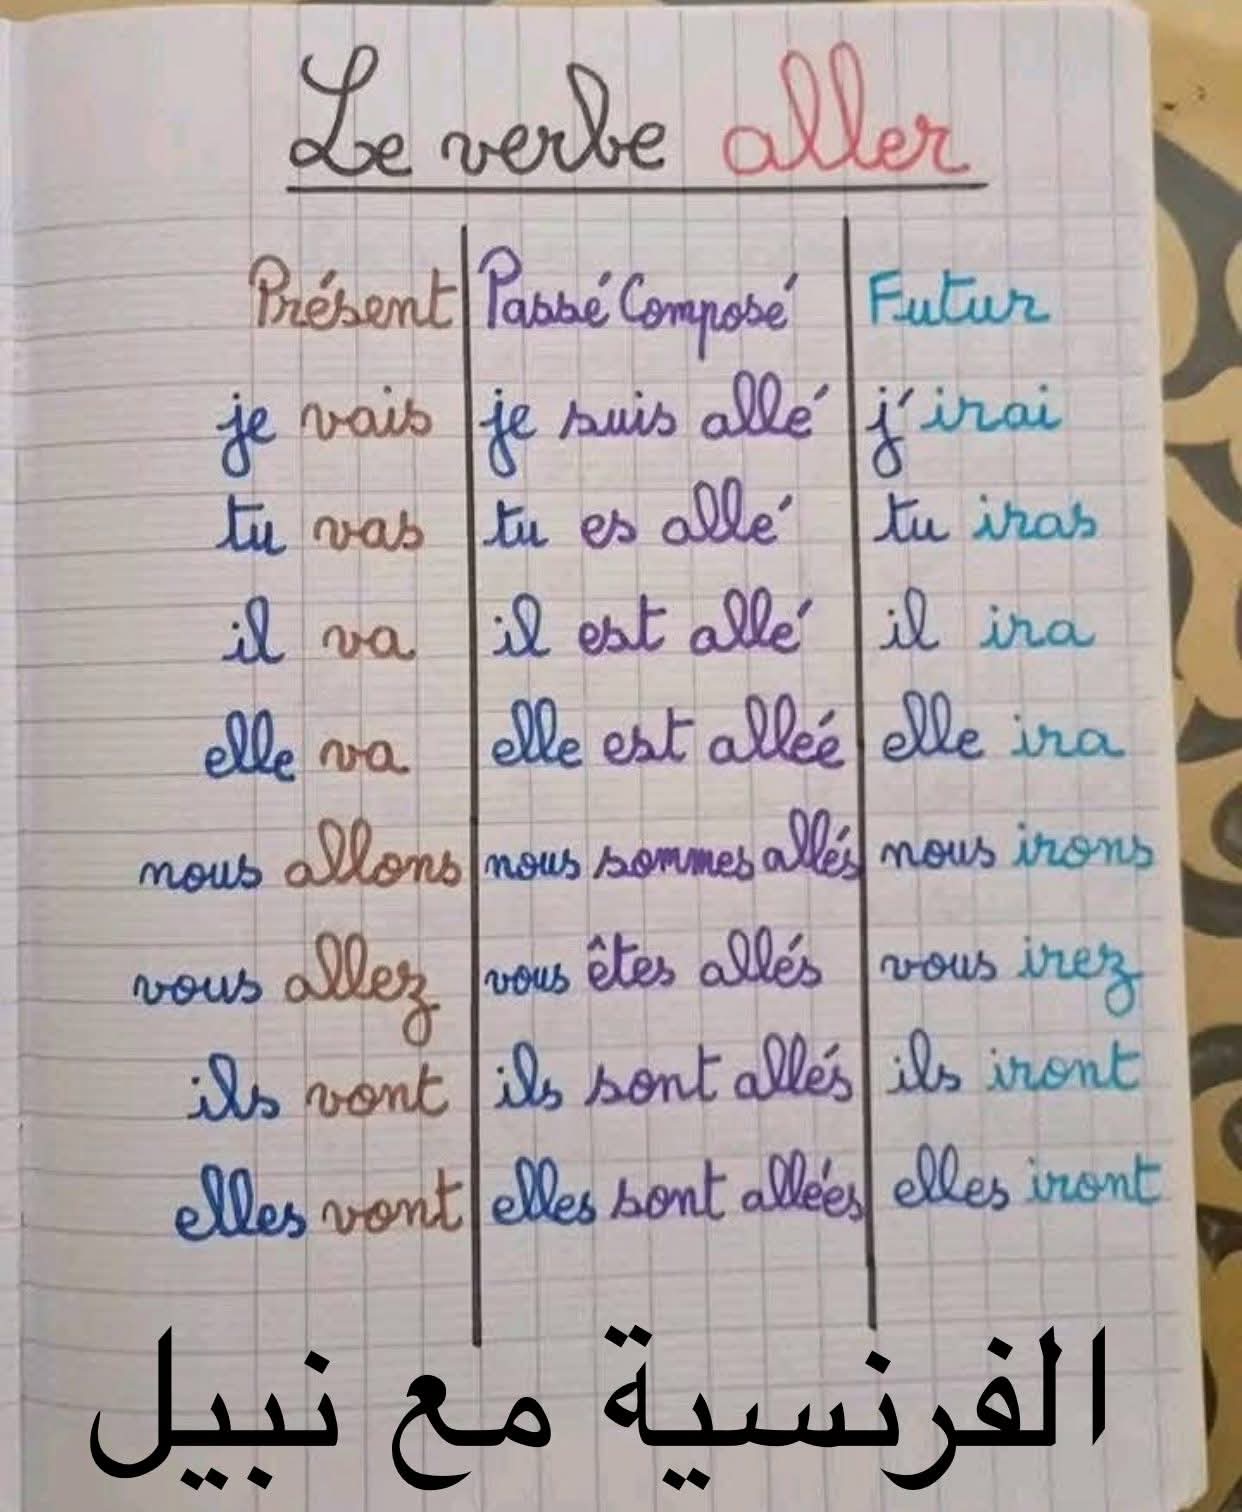 Le verbe aller
Présent Passé Composé Futur
je vais je suis allé j'irai
tu vas tu es allé tu iras
il va il est allé il ira
elle va elle est alleé elle ira
nous allons nous sommes allés nous irons
vous allez vous êtes allés vous irez
ils vont ils sont allés ils iront
elles vont elles sont allées elles iront
الفرنسية مع نبيل